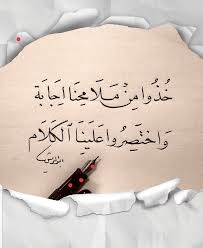 خُذُوا مِنْ مَلَامِحِنَا إِجَابَة
وَاخْتَصِرُوا عَلَيْنَا الْكَلَام